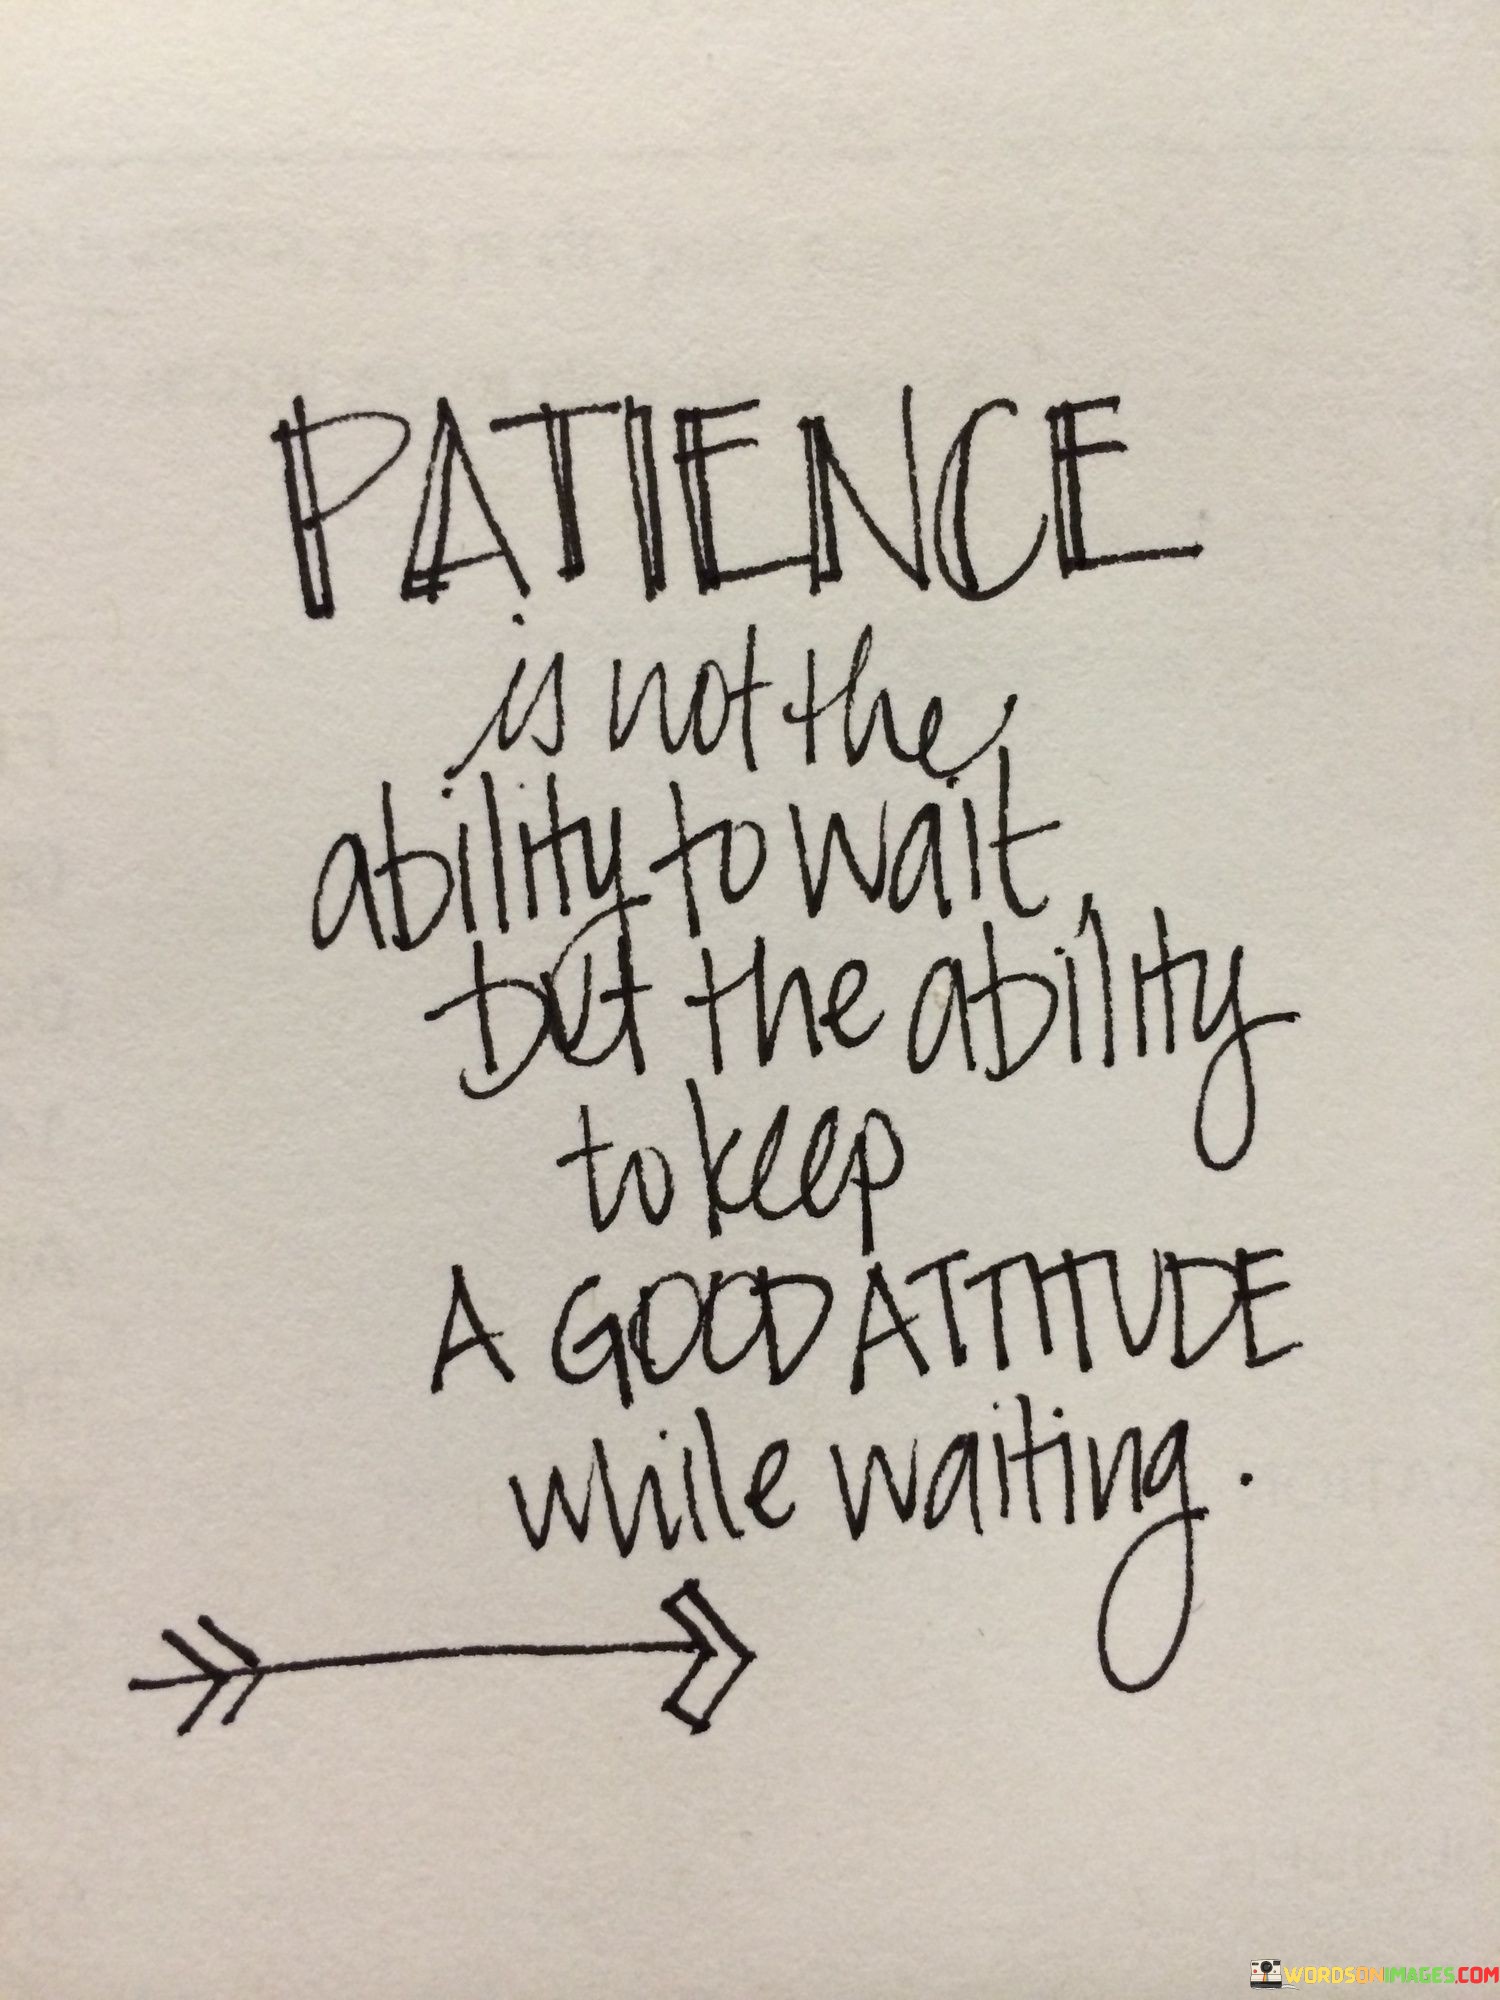 PATIENCE
is not the
ability to wait
but the ability
to keep
A GOOD ATTITUDE
while waiting.
WORDSONIMAGES.COM